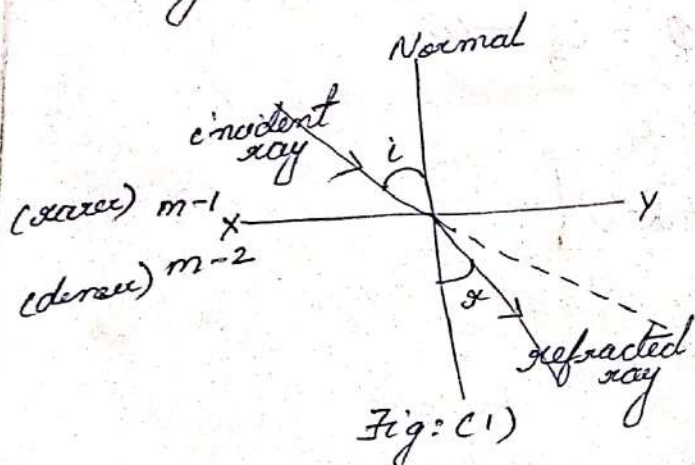 Normal
incident
ray
i
(rarer) m-1
X
Y
(denser) m-2
r
refracted
ray
Fig:(1)